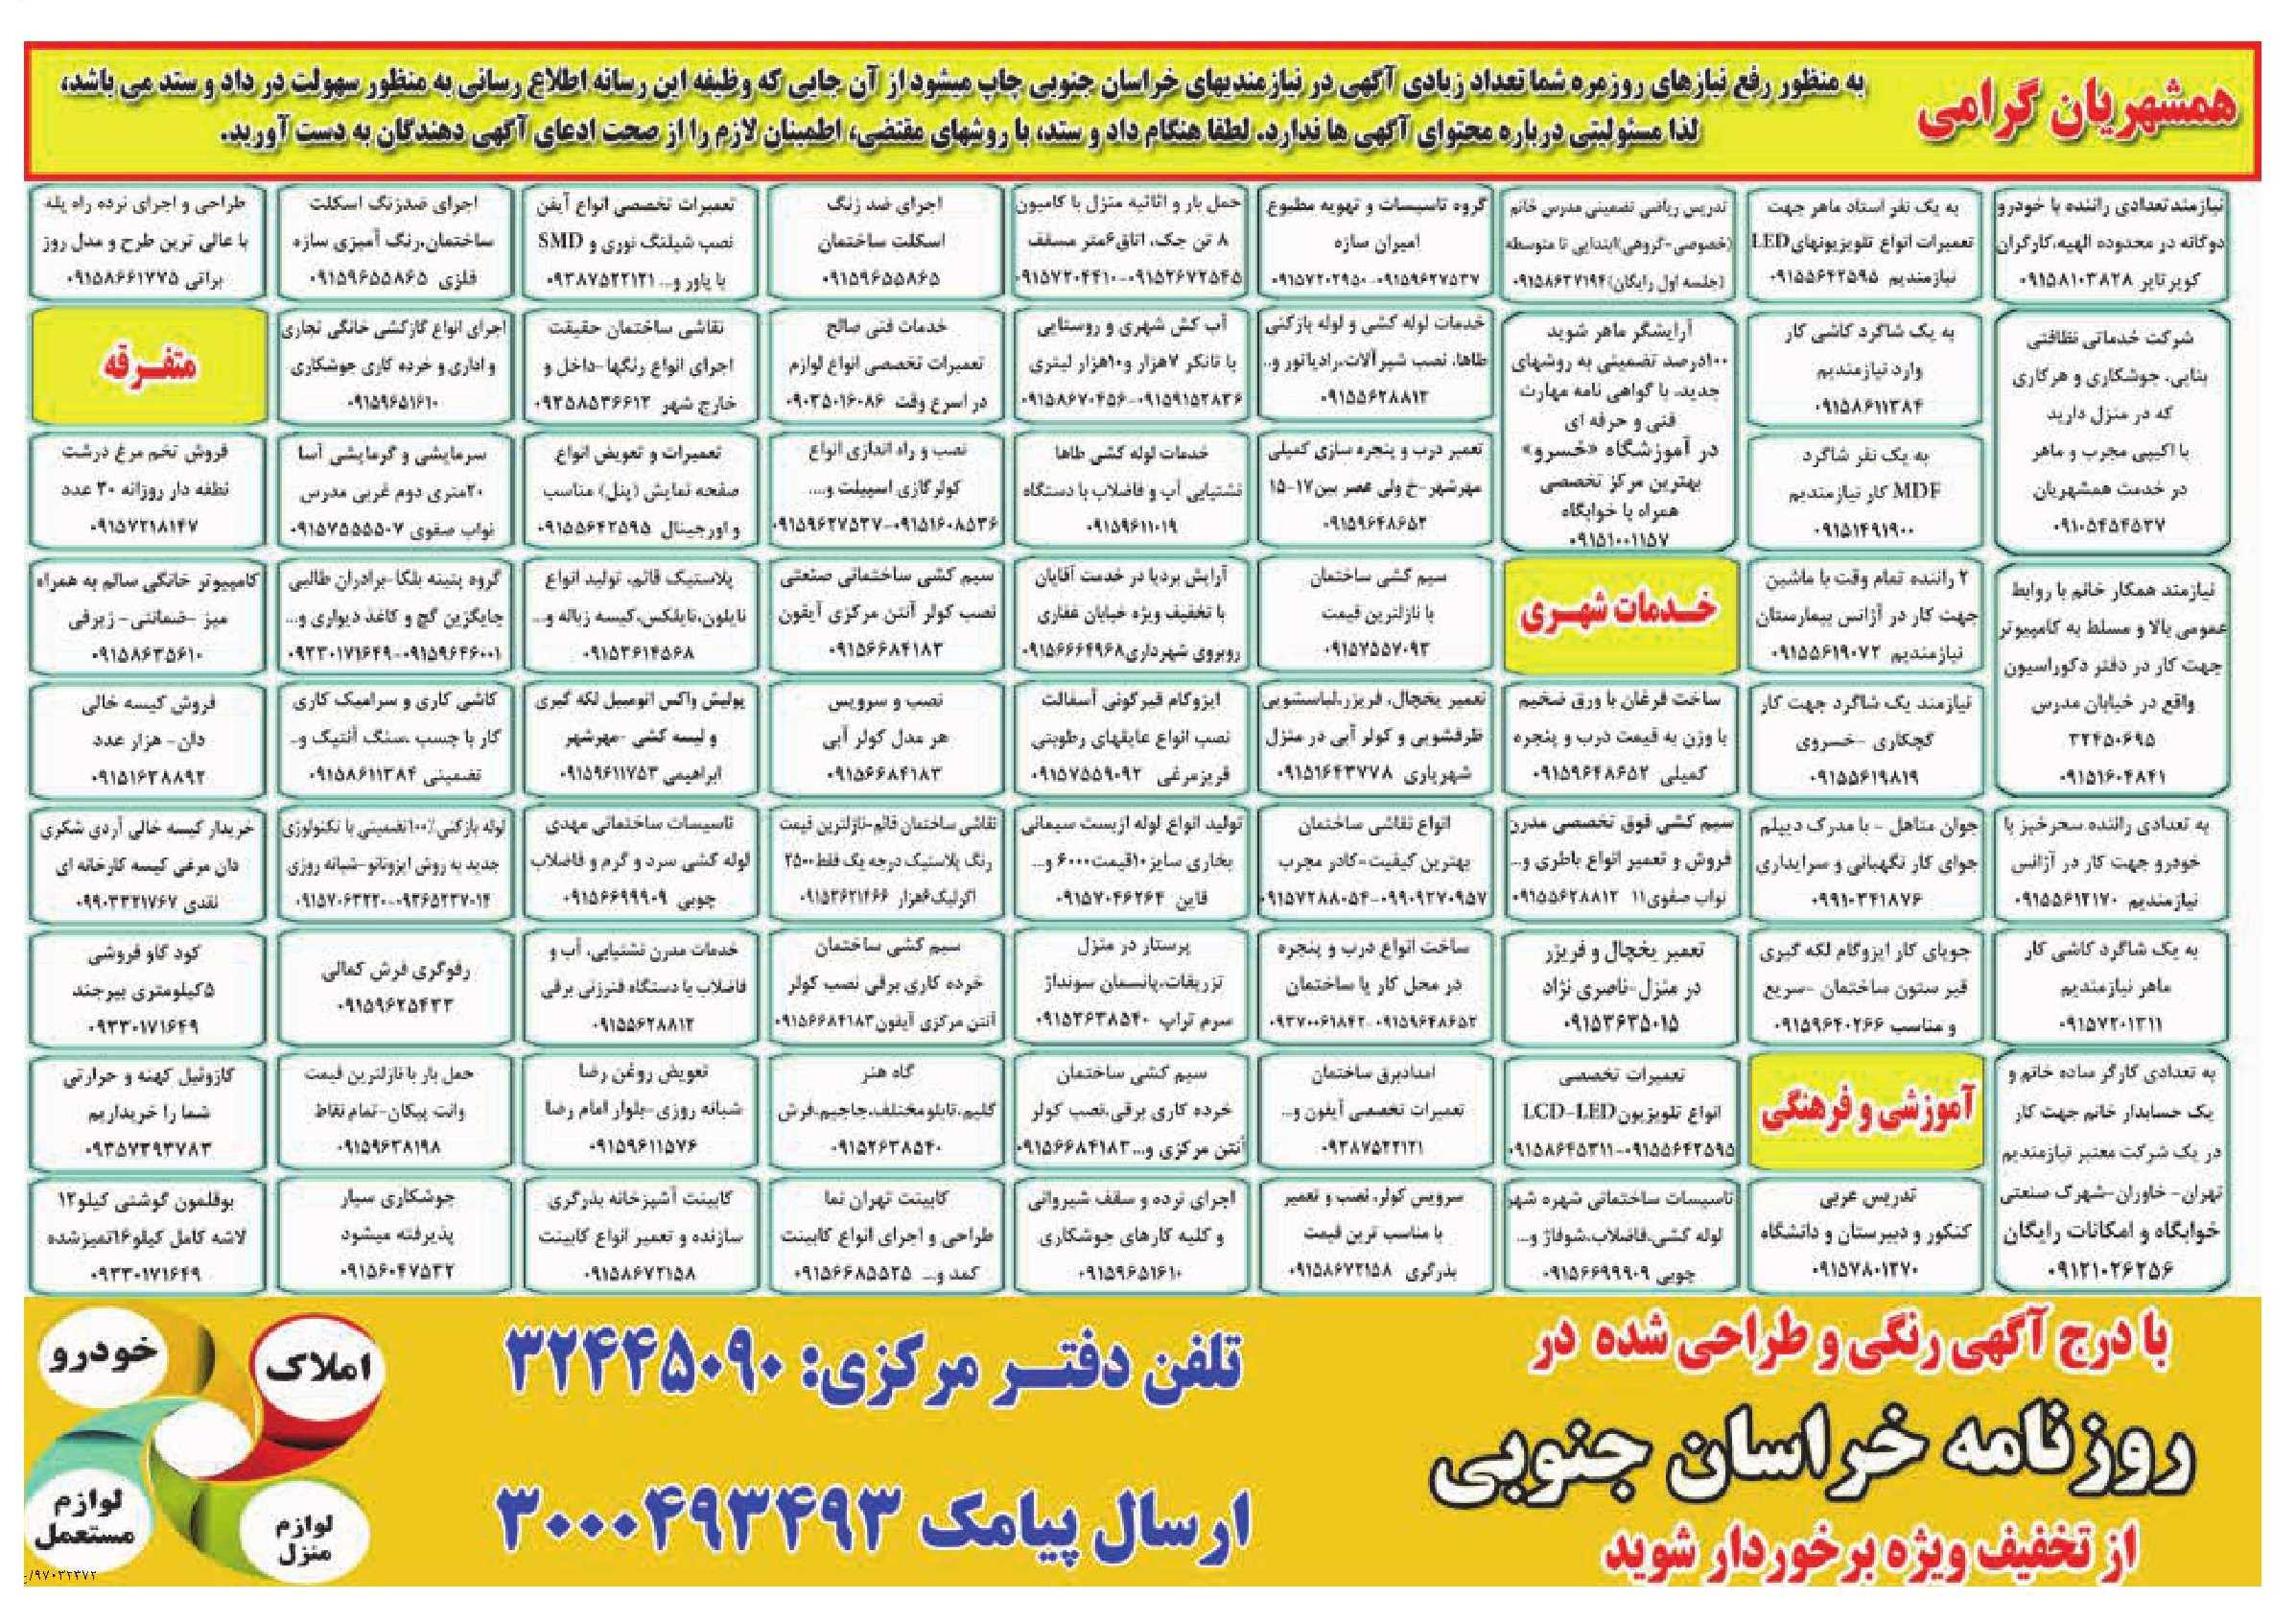 همشهریان گرامی
به منظور رفع نیازهای روزمره شما تعداد زیادی آگهی در نیازمندیهای خراسان جنوبی چاپ میشود از آن جایی که وظیفه این رسانه اطلاع رسانی به منظور سهولت در داد و ستد می باشد،
لذا مسئولیتی درباره محتوای آگهی ها ندارد. لطفا هنگام داد و ستد، با روشهای مقتضی، اطمینان لازم را از صحت ادعای آگهی دهندگان به دست آورید.
نیازمند تعدادی راننده با خودرو
دوگانه در محدوده الهیه، کارگران
کویر تایر ۰۹۱۵۸۱۰۳۸۲۸
شرکت خدماتی نظافتی
بنایی، جوشکاری و هرکاری
که در منزل دارید
با اکیپی مجرب و ماهر
در خدمت همشهریان
نیازمند همکار خانم با روابط
عمومی بالا و مسلط به کامپیوتر
جهت کار در دفتر دکوراسیون
واقع در خیابان مدرس
۳۲۴۵۰۶۹۵
۰۹۱۵۱۶۰۴۸۴۱
به تعدادی راننده سحرخیز با
خودرو جهت کار در آژانس
نیازمندیم ۰۹۱۵۵۶۱۲۱۷۰
به یک شاگرد کاشی کار
ماهر نیازمندیم
۰۹۱۵۷۲۰۱۳۱۱
به تعدادی کارگر ساده خانم و
یک حسابدار خانم جهت کار
در یک شرکت معتبر نیازمندیم
تهران- خاوران-شهرک صنعتی
خوابگاه و امکانات رایگان
۰۹۱۲۱۰۲۶۲۵۶
به یک نفر استاد ماهر جهت
تعمیرات انواع تلویزیونهای LED
نیازمندیم ۰۹۱۵۵۶۴۲۵۹۵
به یک شاگرد کاشی کار
وارد نیازمندیم
۰۹۱۵۸۶۱۱۳۸۴
به یک نفر شاگرد
MDF کار نیازمندیم
۰۹۱۵۱۴۹۱۹۰۰
۲ راننده تمام وقت با ماشین
جهت کار در آژانس بیمارستان
نیازمندیم ۰۹۱۵۵۶۱۹۰۷۲
نیازمند یک شاگرد جهت کار
گچکاری -خسروی
۰۹۱۵۵۶۱۹۸۱۹
جوان متاهل - با مدرک دیپلم
جوای کار نگهبانی و سرایداری
۰۹۹۱۰۳۴۱۸۷۶
جویای کار ایزوگام لکه گیری
قیر ستون ساختمان -سریع
و مناسب ۰۹۱۵۹۶۴۰۲۶۶
آموزشی و فرهنگی
تدریس عربی
کنکور و دبیرستان و دانشگاه
۰۹۱۵۷۸۰۱۲۷۰
تدریس ریاضی تضمینی مدرس خانم
(خصوصی-گروهی)ابتدایی تا متوسطه
(جلسه اول رایگان)۰۹۱۵۸۶۳۷۱۹۴
آرایشگر ماهر شوید
۱۰۰درصد تضمینی به روشهای
جدید، با گواهی نامه مهارت
فنی و حرفه ای
در آموزشگاه «خسرو»
بهترین مرکز تخصصی
همراه با خوابگاه
۰۹۱۵۱۰۰۱۱۵۷
خدمات شهری
ساخت فرغان با ورق ضخیم
با وزن به قیمت درب و پنجره
کمیلی ۰۹۱۵۹۶۴۸۶۵۲
سیم کشی فوق تخصصی مدرن
فروش و تعمیر انواع باطری و...
نواب صفوی۱۱ ۰۹۱۵۵۶۲۸۸۱۲
تعمیر یخچال و فریزر
در منزل-ناصری نژاد
۰۹۱۵۳۶۳۵۰۱۵
تعمیرات تخصصی
انواع تلویزیون LCD-LED
۰۹۱۵۸۶۴۵۳۱۱-۰۹۱۵۵۶۴۲۵۹۵
تاسیسات ساختمانی شهره شهر
لوله کشی، فاضلاب، شوفاژ و...
چوبی ۰۹۱۵۶۶۹۹۹۰۹
گروه تاسیسات و تهویه مطبوع
امیران سازه
۰۹۱۵۷۲۰۲۹۵۰-۰۹۱۵۹۶۲۷۵۳۷
خدمات لوله کشی و لوله بازکنی
طاها، نصب شیرآلات، رادیاتور و..
۰۹۱۵۵۶۲۸۸۱۲
تعمیر درب و پنجره سازی کمیلی
مهرشهر-خ ولی عصر بین۱۷-۱۵
۰۹۱۵۹۶۴۸۶۵۲
سیم کشی ساختمان
با نازلترین قیمت
۰۹۱۵۷۵۵۷۰۹۳
تعمیر یخچال، فریزر، لباسشویی
ظرفشویی و کولر آبی در منزل
شهریاری ۰۹۱۵۱۶۴۳۷۷۸
انواع نقاشی ساختمان
بهترین کیفیت-کادر مجرب
۰۹۱۵۷۲۸۸۰۵۴-۰۹۹۰۹۲۷۰۹۵۷
ساخت انواع درب و پنجره
در محل کار یا ساختمان
۰۹۳۷۰۰۶۱۸۴۲-۰۹۱۵۹۶۴۸۶۵۲
امدادبرق ساختمان
تعمیرات تخصصی آیفون و...
۰۹۳۸۷۵۲۲۱۲۱
سرویس کولر، نصب و تعمیر
با مناسب ترین قیمت
بذرگری ۰۹۱۵۸۶۷۲۱۵۸
حمل بار و اثاثیه منزل با کامیون
۸ تن جک، اتاق۶متر مسقف
۰۹۱۵۷۲۰۴۴۱۰-۰۹۱۵۲۶۷۲۵۴۵
آب کش شهری و روستایی
با تانکر ۷هزار و۱۰هزار لیتری
۰۹۱۵۸۶۷۰۴۵۶-۰۹۱۵۹۱۵۲۸۳۶
خدمات لوله کشی طاها
نشتیابی آب و فاضلاب با دستگاه
۰۹۱۵۹۶۱۱۰۱۹
آرایش بردیا در خدمت آقایان
با تخفیف ویژه خیابان غفاری
روبروی شهرداری۰۹۱۵۶۶۶۴۹۶۸
ایزوگام قیرگونی آسفالت
نصب انواع عایقهای رطوبتی
فریزمرغی ۰۹۱۵۷۵۵۹۰۹۲
تولید انواع لوله ازبست سیمانی
بخاری سایز۱۰قیمت۶۰۰۰ و...
قاین ۰۹۱۵۷۰۴۶۲۶۴
پرستار در منزل
تزریقات، پانسمان سونداژ
سرم تراپ ۰۹۱۵۲۶۳۸۵۴۰
سیم کشی ساختمان
خرده کاری برقی، نصب کولر
آنتن مرکزی و...۰۹۱۵۶۶۸۴۱۸۳
اجرای نرده و سقف شیروانی
و کلیه کارهای جوشکاری
۰۹۱۵۹۶۵۱۶۱۰
اجرای ضد زنگ
اسکلت ساختمان
۰۹۱۵۹۶۵۵۸۶۵
خدمات فنی صالح
تعمیرات تخصصی انواع لوازم
در اسرع وقت ۰۹۰۳۵۰۱۶۰۸۶
نصب و راه اندازی انواع
کولر گازی اسپیلت و....
۰۹۱۵۹۶۲۷۵۳۷-۰۹۱۵۱۶۰۸۵۳۶
سیم کشی ساختمانی صنعتی
نصب کولر آنتن مرکزی آیفون
۰۹۱۵۶۶۸۴۱۸۳
نصب و سرویس
هر مدل کولر آبی
۰۹۱۵۶۶۸۴۱۸۳
نقاشی ساختمان قائم-نازلترین قیمت
رنگ پلاستیک درجه یک فقط۲۵۰۰
اکرلیک۶هزار ۰۹۱۵۳۶۲۱۴۶۶
سیم کشی ساختمان
خرده کاری برقی نصب کولر
آنتن مرکزی آیفون۰۹۱۵۶۶۸۴۱۸۳
گاه هنر
گلیم، تابلومختلف، جاجیم، فرش
۰۹۱۵۲۶۳۸۵۴۰
کابینت تهران نما
طراحی و اجرای انواع کابینت
کمد و... ۰۹۱۵۶۶۸۵۵۲۵
تعمیرات تخصصی انواع آیفن
نصب شیلنگ نوری و SMD
با پاور و... ۰۹۳۸۷۵۲۲۱۲۱
نقاشی ساختمان حقیقت
اجرای انواع رنگها-داخل و
خارج شهر ۰۹۳۵۸۵۳۶۶۱۲
تعمیرات و تعویض انواع
صفحه نمایش (پنل) مناسب
و اورجینال ۰۹۱۵۵۶۴۲۵۹۵
پلاستیک قائم، تولید انواع
نایلون، نایلکس، کیسه زباله و...
۰۹۱۵۳۶۱۴۵۶۸
پولیش واکس اتومبیل لکه گیری
و لیسه کشی -مهرشهر
ابراهیمی ۰۹۱۵۹۶۱۱۷۵۳
تاسیسات ساختمانی مهدی
لوله کشی سرد و گرم و فاضلاب
چوبی ۰۹۱۵۶۶۹۹۹۰۹
خدمات مدرن نشتیابی، آب و
فاضلاب با دستگاه فنرزنی برقی
۰۹۱۵۵۶۲۸۸۱۲
تعویض روغن رضا
شبانه روزی-بلوار امام رضا
۰۹۱۵۹۶۱۱۵۷۶
کابینت آشپزخانه بذرگری
سازنده و تعمیر انواع کابینت
۰۹۱۵۸۶۷۲۱۵۸
اجرای ضدزنگ اسکلت
ساختمان، رنگ آمیزی سازه
فلزی ۰۹۱۵۹۶۵۵۸۶۵
اجرای انواع گازکشی خانگی تجاری
و اداری و خرده کاری جوشکاری
۰۹۱۵۹۶۵۱۶۱۰
سرمایشی و گرمایشی آسا
۲۰متری دوم غربی مدرس
نواب صفوی ۰۹۱۵۷۵۵۵۵۰۷
گروه پتینه بلکا-برادران طالبی
جایگزین گچ و کاغذ دیواری و...
۰۹۳۳۰۱۷۱۶۴۹-۰۹۱۵۹۶۴۶۰۰۱
کاشی کاری و سرامیک کاری
کار با چسب ،سنگ آنتیک و..
تضمینی ۰۹۱۵۸۶۱۱۳۸۴
لوله بازکنی٪۱۰۰تضمینی با تکنولوژی
جدید به روش ایزونانو-شبانه روزی
۰۹۱۵۷۰۶۳۲۲۰-۰۹۳۶۵۲۳۷۰۱۴
رفوگری فرش کمالی
۰۹۱۵۹۶۲۵۴۳۳
حمل بار با نازلترین قیمت
وانت پیکان-تمام نقاط
۰۹۱۵۹۶۳۸۱۹۸
جوشکاری سیار
پذیرفته میشود
۰۹۱۵۶۰۴۷۵۳۲
طراحی و اجرای نرده راه پله
با عالی ترین طرح و مدل روز
براتی ۰۹۱۵۸۶۶۱۷۷۵
متفرقه
فروش تخم مرغ درشت
نطفه دار روزانه ۳۰ عدد
۰۹۱۵۷۲۱۸۱۴۷
کامپیوتر خانگی سالم به همراه
میز -ضمانتی- زیرقی
۰۹۱۵۸۶۳۵۶۱۰
فروش کیسه خالی
دان- هزار عدد
۰۹۱۵۱۶۳۸۸۹۲
خریدار کیسه خالی آردی شکری
دان مرغی کیسه کارخانه ای
نقدی ۰۹۹۰۳۳۲۱۷۶۷
کود گاو فروشی
۵کیلومتری بیرجند
۰۹۳۳۰۱۷۱۶۴۹
گازوئیل کهنه و حرارتی
شما را خریداریم
۰۹۳۵۷۳۹۳۷۸۳
بوقلمون گوشتی کیلو۱۲
لاشه کامل کیلو۱۶تمیزشده
۰۹۳۳۰۱۷۱۶۴۹
با درج آگهی رنگی و طراحی شده در
روزنامه خراسان جنوبی
از تخفیف ویژه برخوردار شوید
تلفن دفتر مرکزی: ۳۲۴۴۵۰۹۰
ارسال پیامک ۳۰۰۰۴۹۳۴۹۳
املاک
خودرو
لوازم منزل
لوازم مستعمل
۹۷۰۳۲۳۷۲/